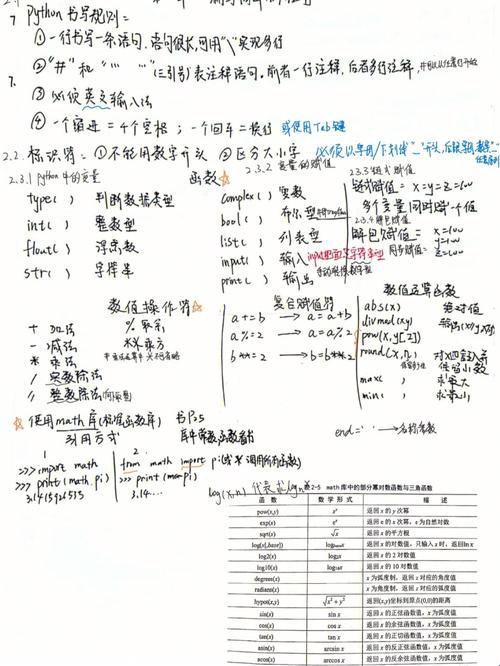 7 Python 书写规则:
① 一行书写一条语句,语句很长,可用"\"实现多行
② "#" 和 "''' '''" (三引号)表注释语句,前者一行注释,后者多行注释,
7.
③ 必须英文输入法
④ 一个缩进 = 4个空格; 一个回车 = 换行 或使用Tab键
2.2. 标识符: ① 不能用数字开头 ② 区分大小写 必须以字母/下划线"_"开头,
2.3.1 python 中的变量 函数☆
type( ) 判断数据类型
int( ) 整数型
float( ) 浮点数
str( ) 字符串
2.3.2 变量的赋值
complex( ) 复数
bool( ) 布尔型
list( ) 列表型
input( ) 输入
print( ) 输出
2.3.3 链式赋值
链式赋值 = x=y=z=100
多个变量同时赋一个值
2.3.4 解包赋值
解包赋值 = x=100
同步赋值 y=100
z=100
数值操作符☆
+ 加法 % 取余
- 减法 ** 乘方
* 乘法
/ 实数除法
// 整数除法
复合赋值符
a+=b → a=a+b
a%=2 → a=a%2
b**=2 → b=b**2
数值运算函数
abs(x) 绝对值
divmod(x,y) 输出(x//y, x%y)
pow(x,y[,z])
round(x,n) 对x四舍五入
保留小数
max( ) 求最大
min( ) 求最小
☆ 使用math库(标准函数库) 书P25
引用方式 库中常数,函数看书
end=' '
1
>>> import math
>>> print(math.pi)
3.1415926535
2
from math import pi(或* 调用所有函数)
>>> print(
3.14....
log(x,n) 代表求log
表2-5 math库中的部分幂对数函数与三角函数
函数 数学形式 描述
pow(x,y) xʸ 返回 x 的 y 次幂
exp(x) eˣ 返回 e 的 x 次幂,e 为自然对数
sqrt(x) √x 返回 x 的平方根
log(x[,base]) log_base x 返回 x 的对数值,只输入 x 时,返回lnx
log2(x) log₂x 返回 x 的 2 对数值
log10(x) log₁₀x 返回 x 的 10 对数值
degrees(x) x 为弧度制,返回 x 对应的角度值
radians(x) x 为角度制,返回 x 对应的弧度值
hypot(x,y) √x²+y² 返回(x,y)坐标到原点(0,0)的距离
sin(x) sin x 返回 x 的正弦函数值,x 为弧度值
cos(x) cos x 返回 x 的余弦函数值,x 为弧度值
tan(x) tan x 返回 x 的正切函数值,x 为弧度值
asin(x) arcsin x 返回 x 的反正弦函数值,x 为弧度值
acos(x) arccos x 返回 x 的反余弦函数值,x 为弧度值